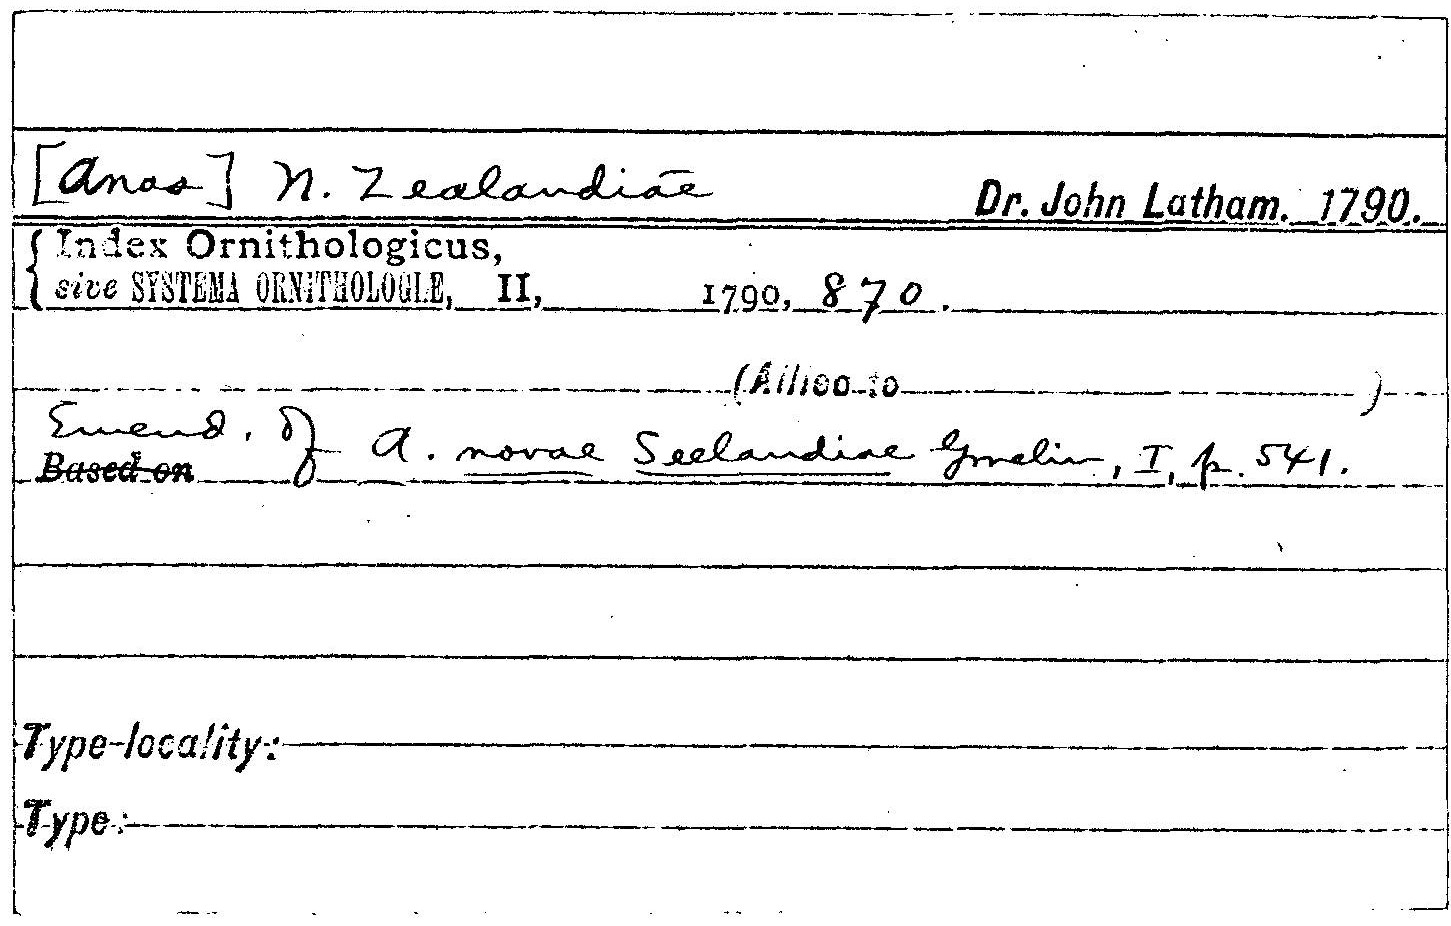 [Anas] N. Zealandiae Dr. John Latham. 1790.
Index Ornithologicus,
sive SYSTEMA ORNITHOLOGIÆ, II, 1790, 870.
(Allied to )
Emend. of A. novae Seelandiae Gmelin, I, p. 541.
Based on
Type-locality:
Type: